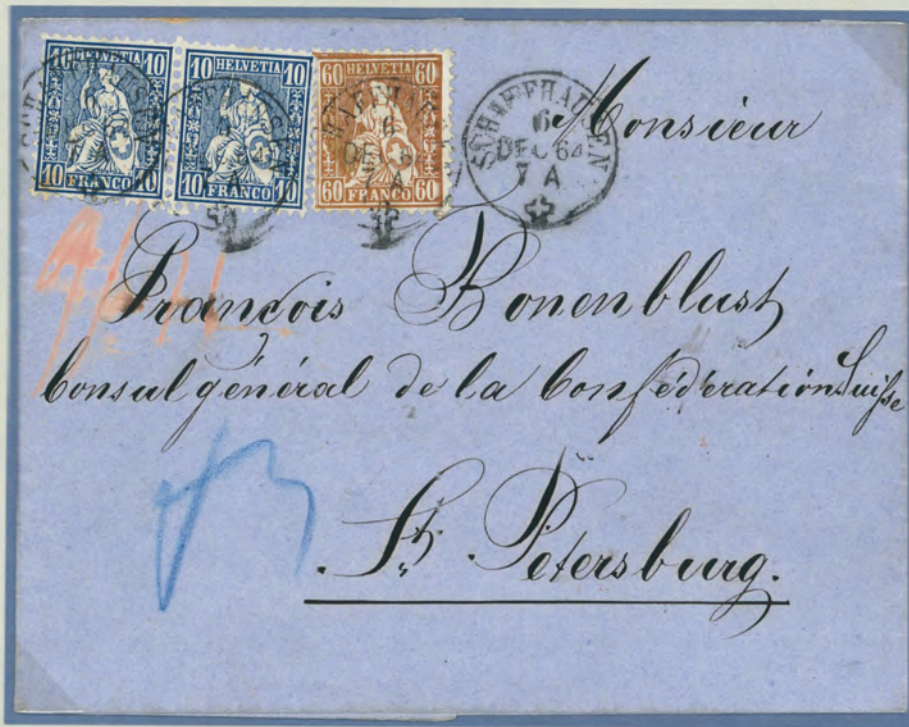 10 HELVETIA 10
10 FRANCO 10
10 HELVETIA 10
10 FRANCO 10
60 HELVETIA 60
60 FRANCO 60
SCHAFFHAUSEN
6
DEC 64
7 A
Monsieur
François Bonenblust
Consul général de la Confédération Suisse
St. Petersburg.